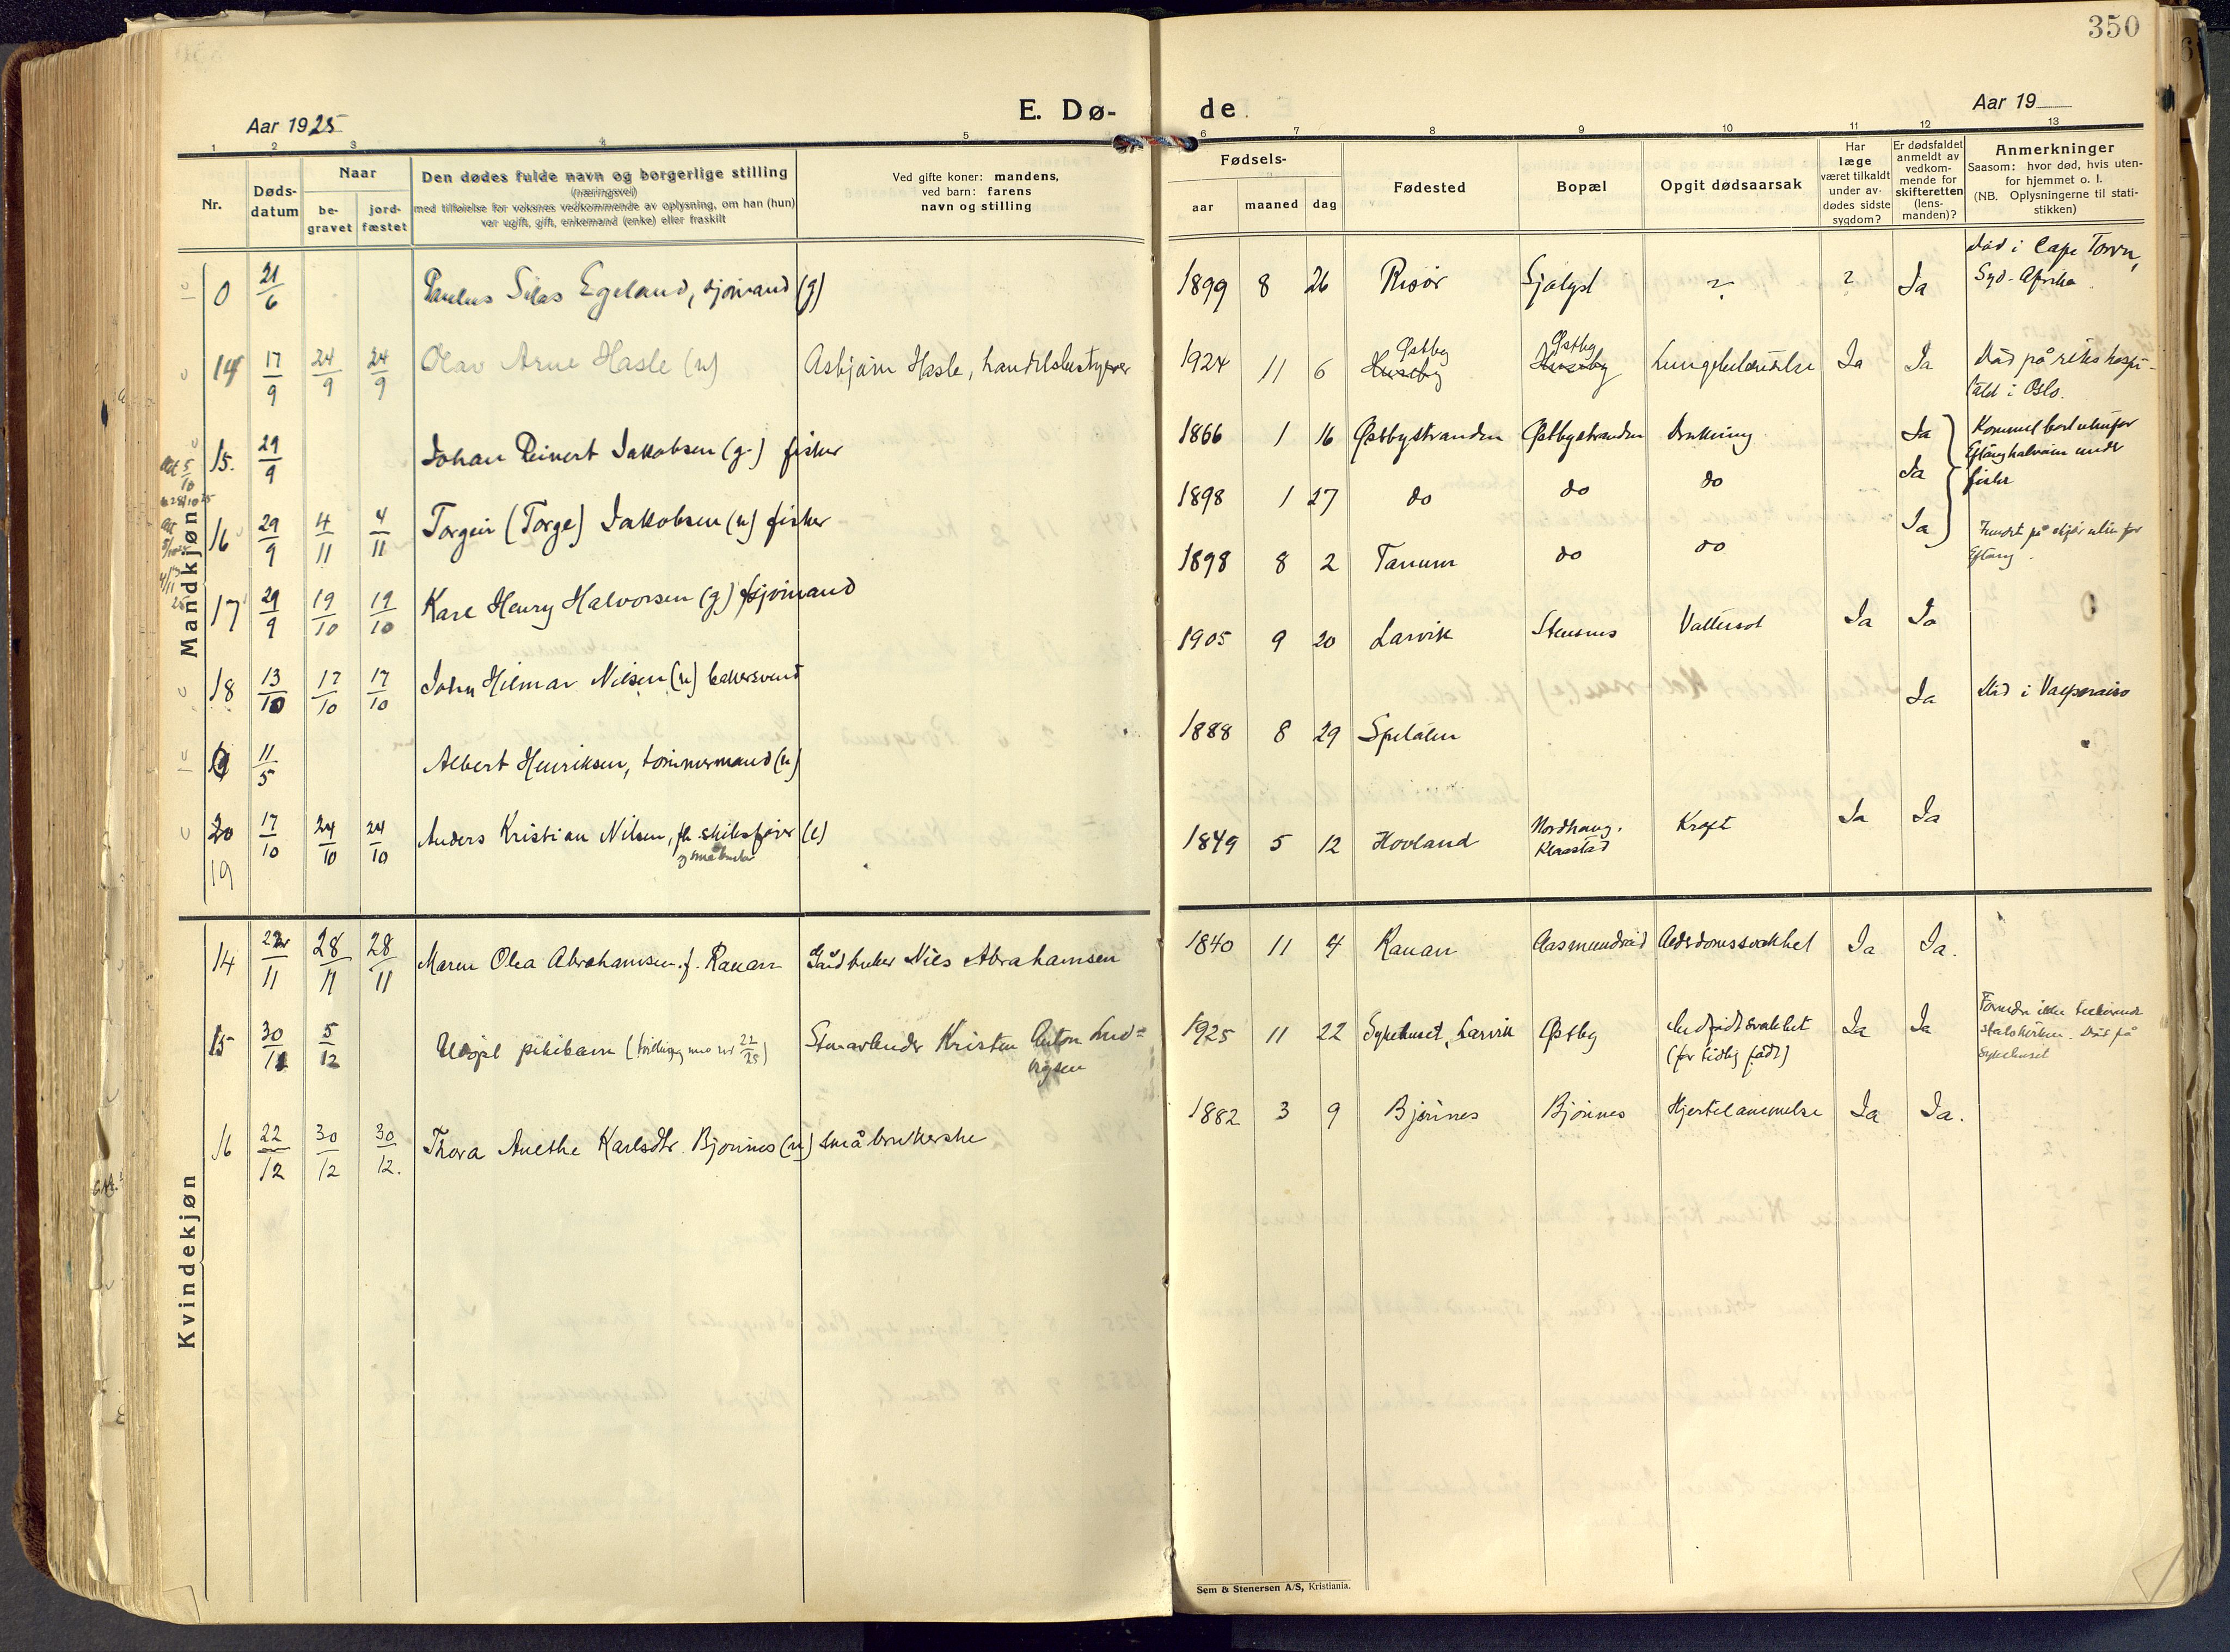 350
Aar 1925
E. Dø-
de.
Aar 19
1 2 3 4 5 6 7 8 9 10 11 12 13
Nr.
Døds-
datum
Naar
be-
gravet
jord-
fæstet
Den dødes fulde navn og borgerlige stilling
(næringsvei)
med tilføielse for voksnes vedkommende av oplysning, om han (hun)
var ugift, gift, enkemand (enke) eller fraskilt
Ved gifte koner: mandens,
ved barn: farens
navn og stilling
Fødsels-
aar maaned dag
Fødested
Bopæl
Opgit dødsaarsak
Har
læge
været tilkaldt
under av-
dødes sidste
sygdom?
Er dødsfaldet
anmeldt av
vedkom-
mende for
skifteretten
(lens-
manden)?
Anmerkninger
Saasom: hvor død, hvis uten-
for hjemmet o. l.
(NB. Oplysningerne til stati-
stikken)
Mandkjøn
0 21/6 Paulus Silas Egeland, sjømand (g) 1899 8 26 Risør Sjølyst ? ? Ja Død i Cape Town,
Syd-Afrika
14 17/9 24/9 24/9 Olav Arne Hasle (u) Asbjørn Hasle, handelsbestyrer 1924 11 6 Østby Østby Lungebetændelse Ja Ja Død på rikshospi-
talet i Oslo.
Huseby Huseby
15. 29/9 Johan Reinert Jakobsen (g.) fisker 1866 1 16 Østbystranden Østbystranden Drukning Ja Kommet bort utenfor
Eftanghalvøen under
fiske
16 29/9 4/11 4/11 Torgeir (Torge) Jakobsen (u) fisker 1898 1 27 do do do Ja
17 29/9 19/10 19/10 Karl Henry Halvorsen (g) sjømand 1898 8 2 Tanum do do Ja Fundet på skjær utenfor
Eftang.
18 13/10 17/10 17/10 John Hilmar Nilsen (u) bakersvend 1905 9 20 Larvik Stensnes Vattersot Ja Ja
0 11/5 Albert Henriksen, tømmermand (u) 1888 8 29 Spetalen Ja Død i Valparaiso
20 17/10 24/10 24/10 Anders Kristian Nilsen, fh. skibsfører (e) 1849 5 12 Hovland Nordhaug, Klaastad Kræft Ja Ja
og småbruker
19
Kvindekjøn
14 22/11 28/11 28/11 Maren Olea Abrahamsen f. Rauan Gårdbruker Nils Abrahamsen 1840 11 4 Rauan Aasmundrød Alderdomssvakhet Ja Ja.
15 30/11 5/12 Udøpt pikebarn (tvilling med nr 22/25) Stenarbeider Kristen Anton Lud-
vigsen 1925 11 22 Sykehuset, Larvik Østby Medfødt svakhet
(for tidlig født) Ja Ja Foreldre ikke tilhørende
statskirken. Død på
Sykehuset
16 22/12 30/12 30/12. Thora Anethe Karlsdtr. Bjønnes (u) småbrukerske 1882 3 9 Bjønnes Bjønnes Hjertelammelse Ja Ja.
Sem & Stenersen A/S, Kristiania.